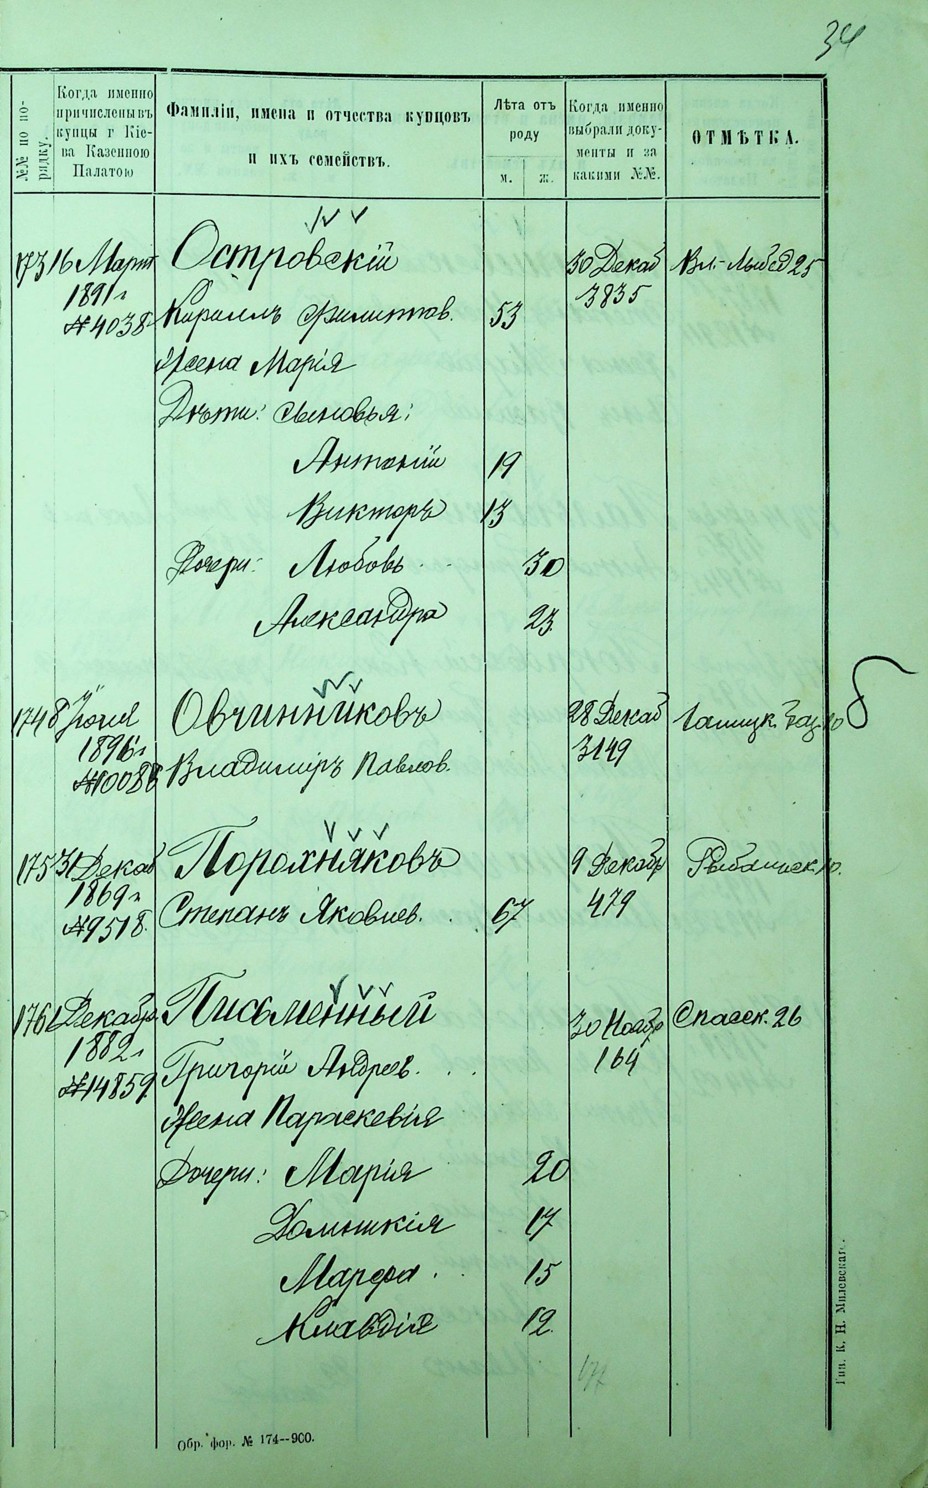 34
№№ по по-
рядку.
Когда именно
причислены въ
купцы г Кіе-
ва Казенною
Палатою
Фамиліи, имена и отчества купцовъ
и ихъ семействъ.
Лѣта отъ
роду
м.
ж.
Когда именно
выбрали доку-
менты и за
какими №№.
ОТМѢТКА.
173 16 Март Островскій 30 Декаб Бл.-Лыбед 25
1891 г 3835
№4038 Кириллъ Филиппов. 53
Жена Марія
Дѣти: сыновья:
Антоній 19
Викторъ 13
Дочери: Любовь 30
Александра 23
174 8 Іюня Овчинниковъ 28 Декаб 10
1896 г 3149
№10088 Владиміръ Павлов.
б
175 31 Декаб Порохняковъ 9 Декабр Рыбальск. 10.
1869 г. 479
№9518. Степанъ Яковлев. 67
176 1 Декабр. Письменный 30 Ноябр Спасск. 26
1882 г 164
№14859 Григорій Андреев.
Жена Параскевія
Дочери: Марія 20
Домникія 17
Марфа 15
Клавдія 12.
177
Обр. фор. № 174--900.
Тип. К. Н. Милевскаго.